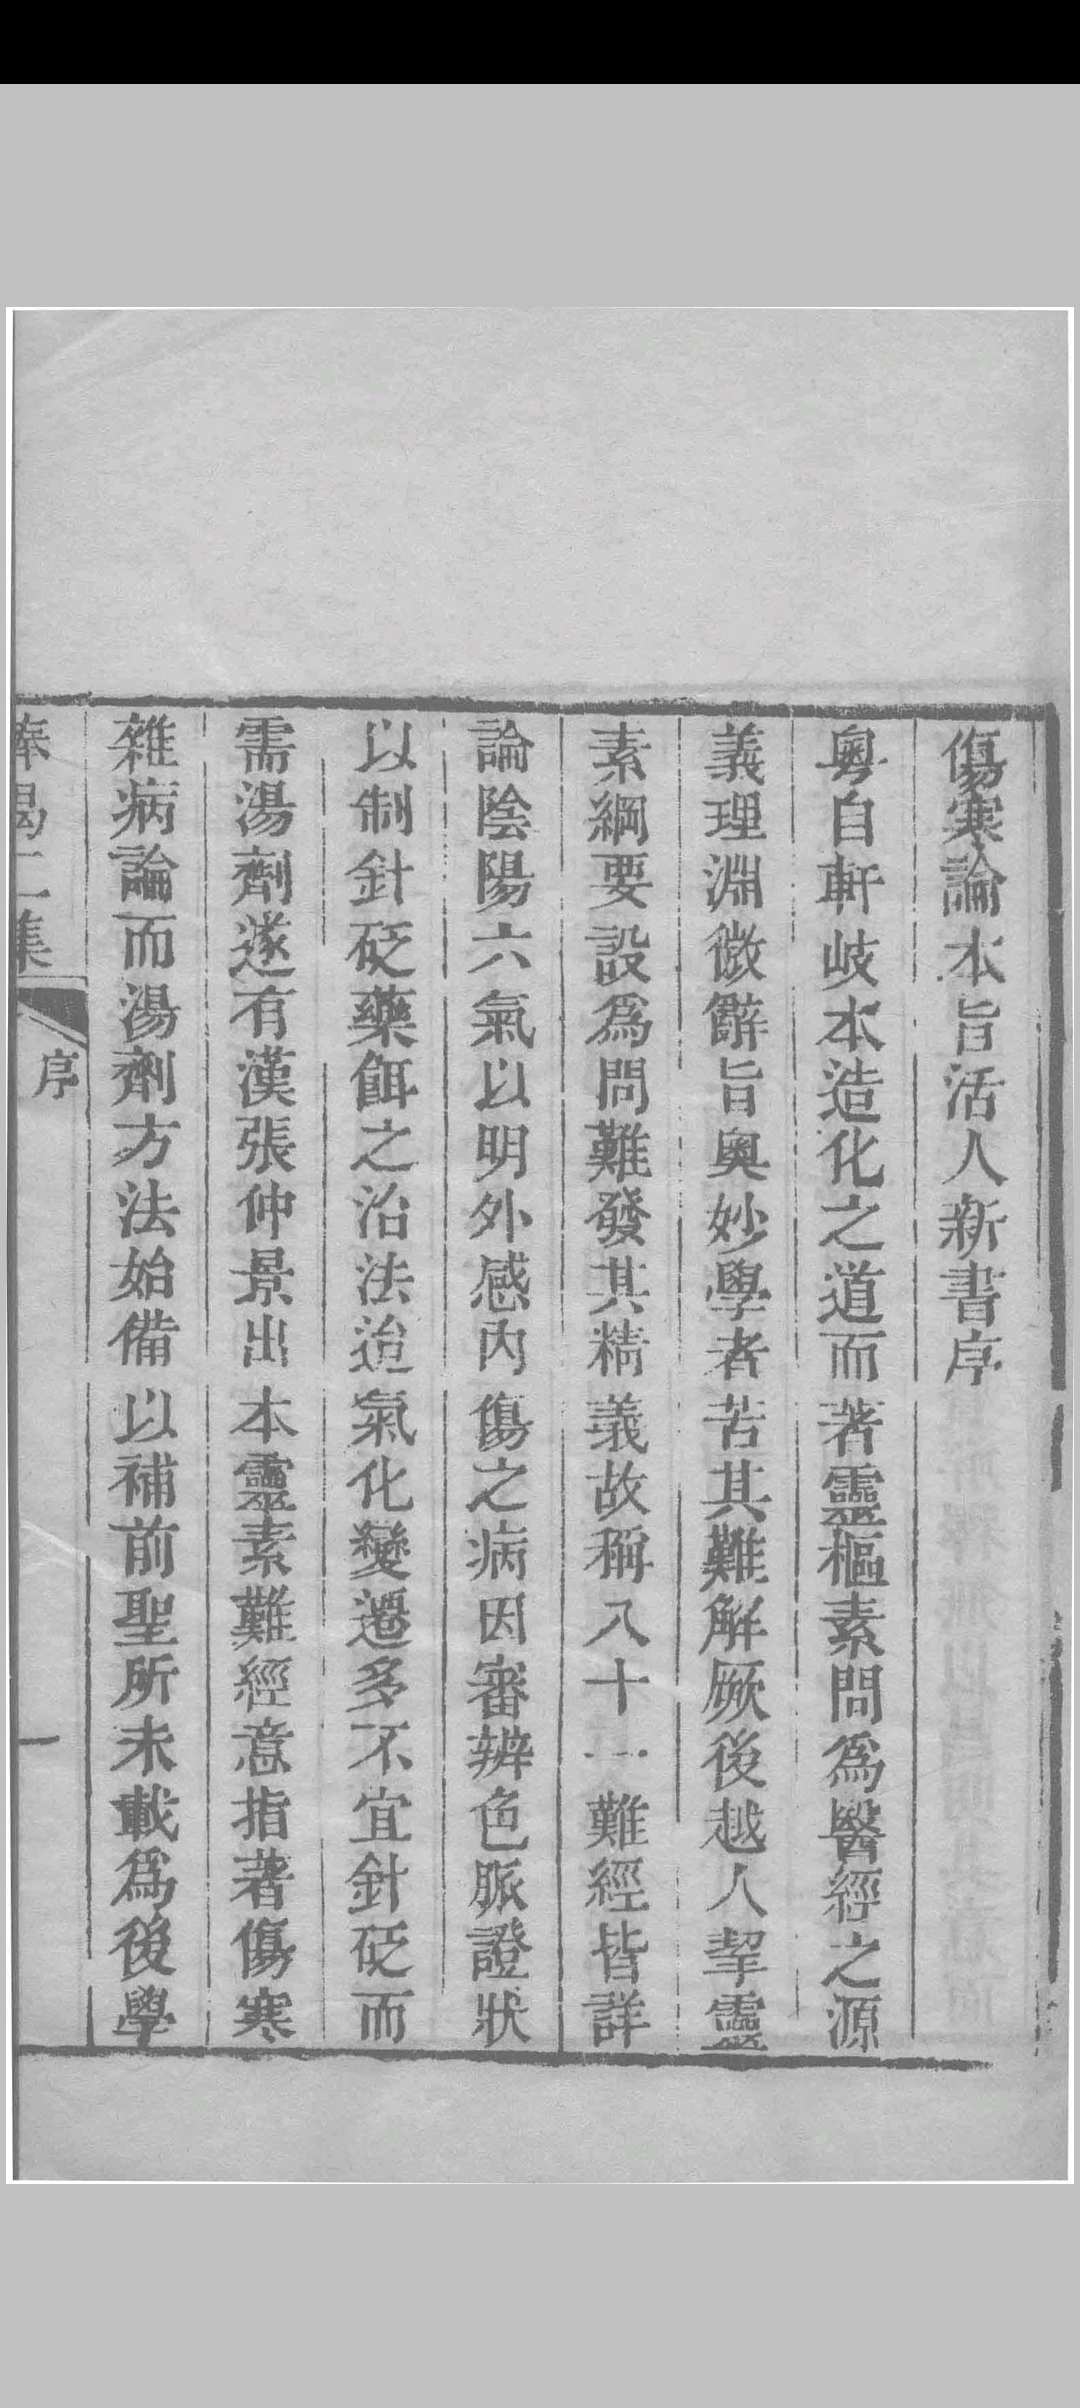 傷寒論本旨活人新書序
粵自軒岐本造化之道而著靈樞素問爲醫經之源
義理淵微辭旨奧妙學者苦其難解厥後越人挈靈
素綱要設爲問難發其精義故稱八十一難經皆詳
論陰陽六氣以明外感內傷之病因審辨色脈證狀
以制針砭藥餌之治法迨氣化變遷多不宜針砭而
需湯劑遂有漢張仲景出本靈素難經意指著傷寒
雜病論而湯劑方法始備以補前聖所未載爲後學
集
序
一